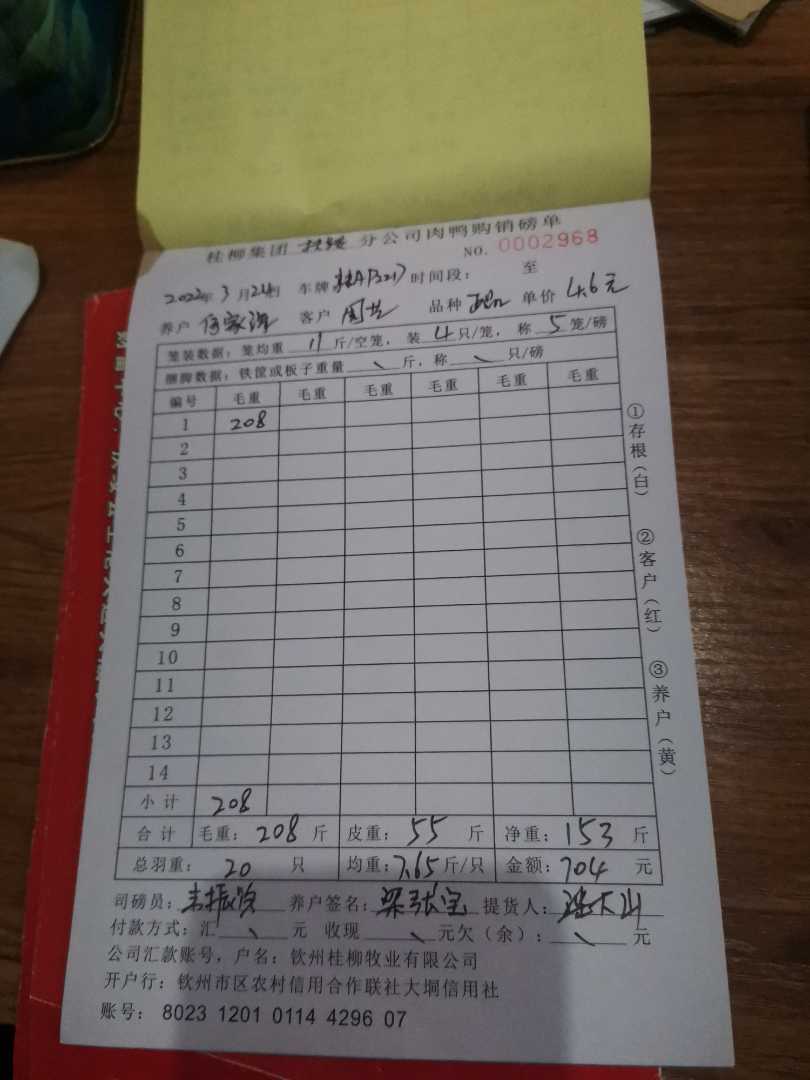 桂柳集团 分公司肉鸭购销磅单
NO. 0002968
2022年3月24日 车牌 时间段: 至
养户 客户 品种 单价 4.6元
笼装数据: 笼均重 11 斤/空笼, 装 4 只/笼, 称 5 笼/磅
捆脚数据: 铁筐或板子重量 斤, 称 只/磅
编号 毛重 毛重 毛重 毛重 毛重 毛重
1 208
2
3
4
5
6
7
8
9
10
11
12
13
14
小计 208
合计 毛重: 208 斤 皮重: 55 斤 净重: 153 斤
总羽重: 20 只 均重: 7.65 斤/只 金额: 704 元
司磅员: 养户签名: 提货人:
付款方式: 汇 元 收现 元欠(余): 元
公司汇款账号, 户名: 钦州桂柳牧业有限公司
开户行: 钦州市区农村信用合作联社大垌信用社
账号: 8023 1201 0114 4296 07
①存根(白) ②客户(红) ③养户(黄)